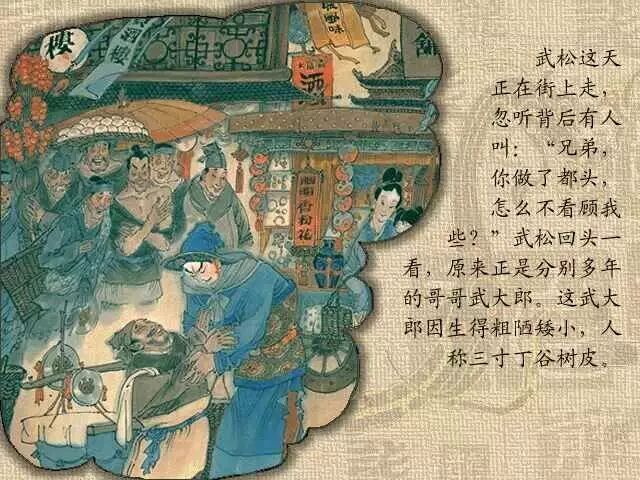 武松这天
正在街上走，
忽听背后有人
叫：“兄弟，
你做了都头，
怎么不看顾我
些？”武松回头一
看，原来正是分别多年
的哥哥武大郎。这武大
郎因生得粗陋矮小，人
称三寸丁谷树皮。
樓
酒樓
風味
酒
香粉花
舖